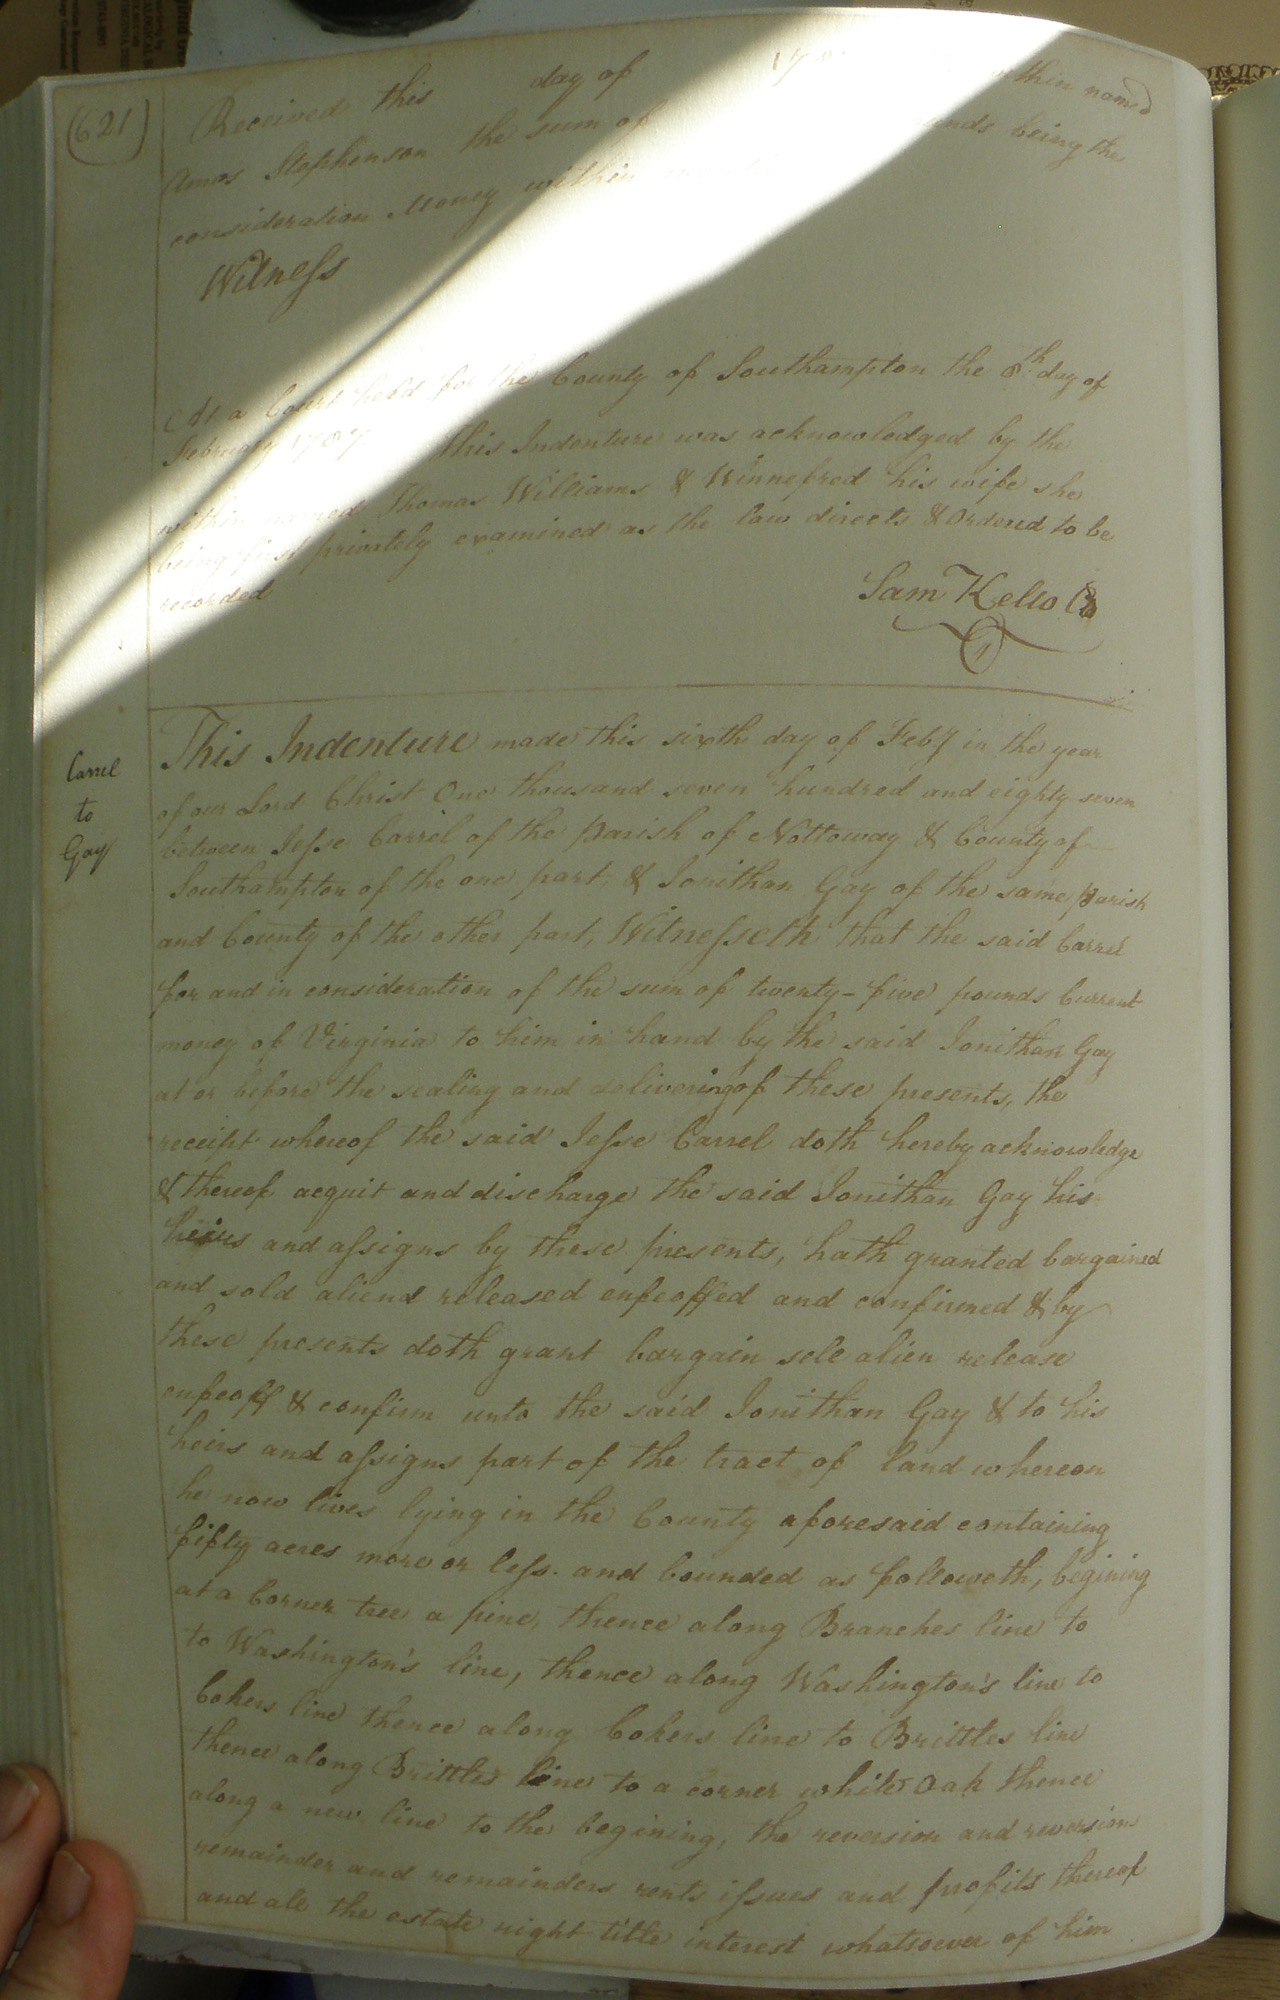 (621)
Received this day of 178 within named
Amos Stephenson the sum of being the
consideration Money within
Witness
At a Court held for the County of Southampton the 8th day of
February 1787 This Indenture was acknowledged by the
within named Thomas Williams & Winnefred his wife she
being first privately examined as the law directs & Ordered to be
recorded
Sam Kello
Carrel
to
Gay
This Indenture made this sixth day of Feby in the year
of our Lord Christ One thousand seven hundred and eighty seven
between Jesse Carrel of the parish of Nottoway & County of
Southampton of the one part, & Jonithan Gay of the same parish
and County of the other part, Witnesseth that the said Carrel
for and in consideration of the sum of twenty-five pounds Current
money of Virginia to him in hand by the said Jonithan Gay
at or before the sealing and delivering of these presents, the
receipt whereof the said Jesse Carrel doth hereby acknowledge
& thereof acquit and discharge the said Jonithan Gay his
heirs and assigns by these presents, hath granted bargained
and sold aliend released enfeoffed and confirmed & by
these presents doth grant bargain sell alien release
enfeoff & confirm unto the said Jonithan Gay & to his
heirs and assigns part of the tract of land whereon
he now lives lying in the County aforesaid containing
fifty acres more or less. and bounded as followeth, begining
at a Corner tree a pine, thence along Branches line to
to Washington's line, thence along Washington's line to
Cokers line thence along Cokers line to Brittles line
thence along Brittles line to a corner white Oak thence
along a new line to the begining, the reversion and reversions
remainder and remainders rents issues and profits thereof
and all the estate right title interest whatsoever of him